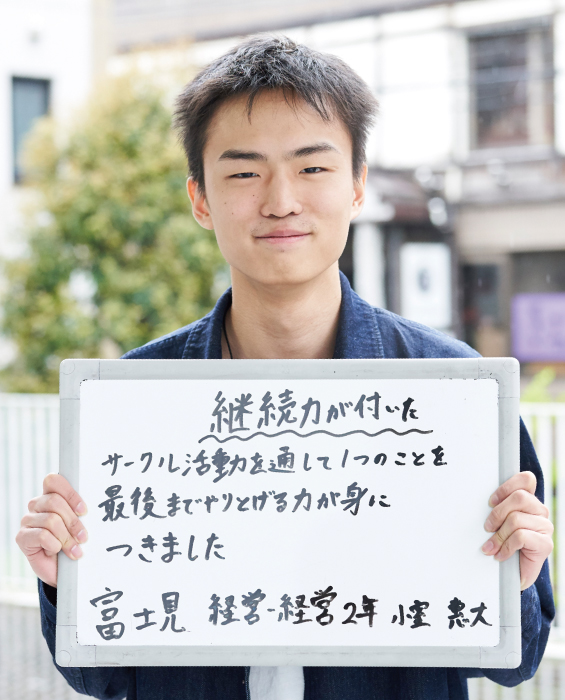 継続力が付いた
サークル活動を通して1つのことを
最後までやりとげる力が身に
つきました
富士見 経営-経営2年 小室 恵大